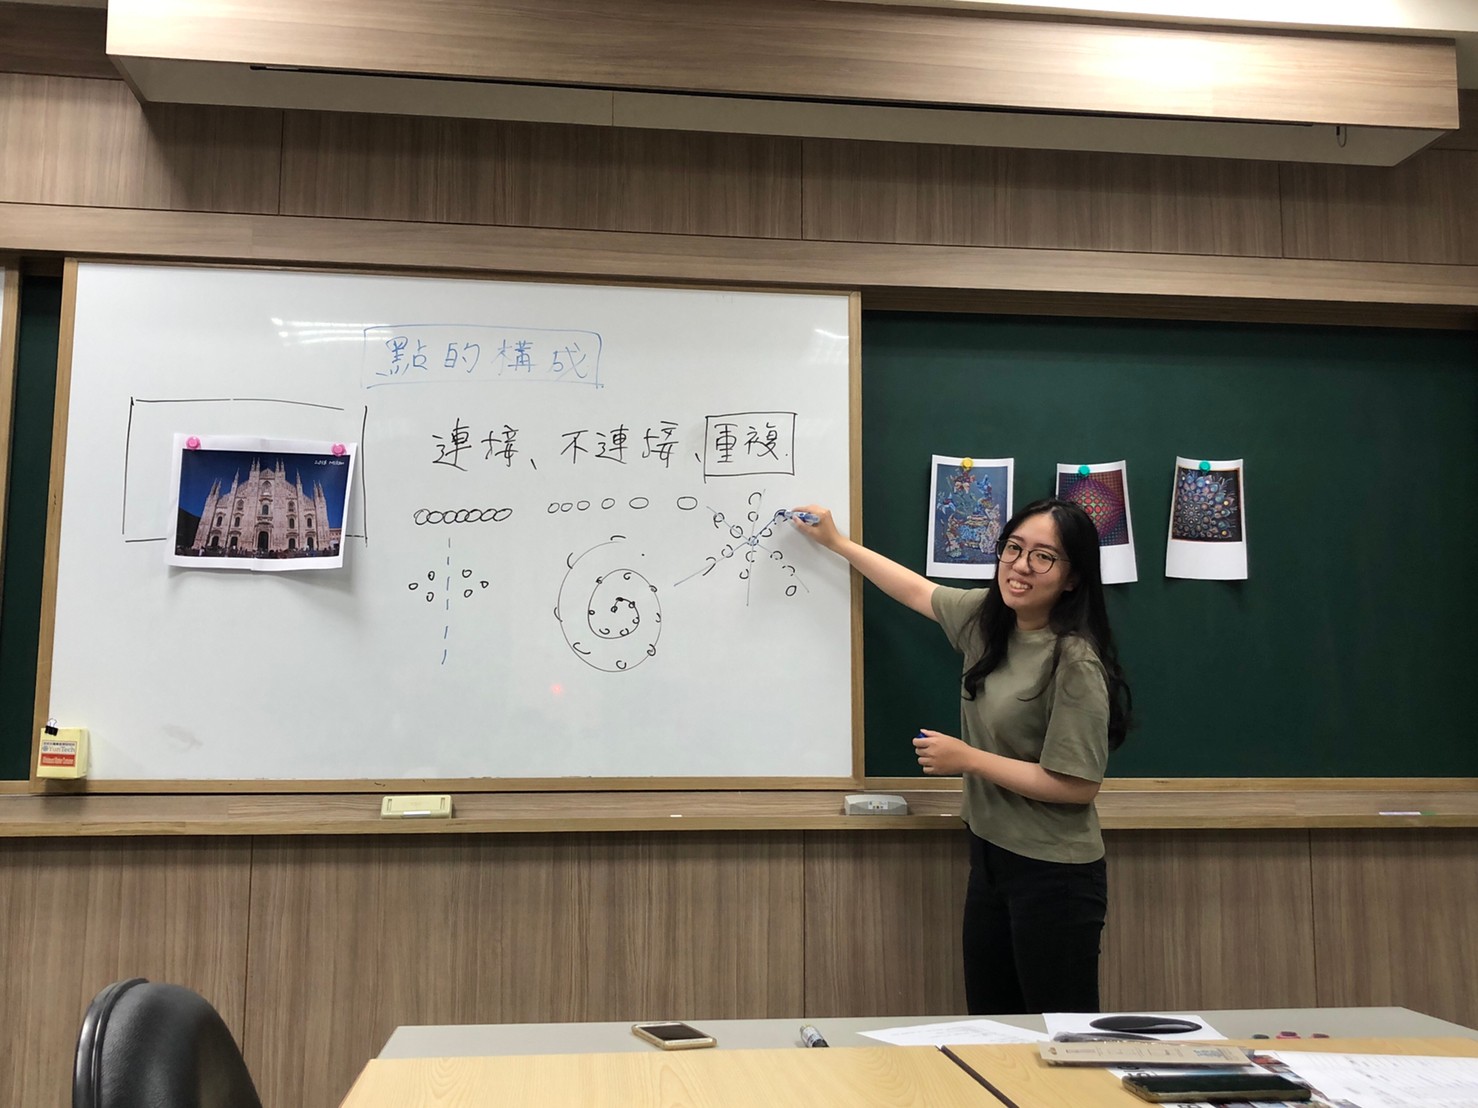 點的構成
連接、不連接、重複.
YunTech